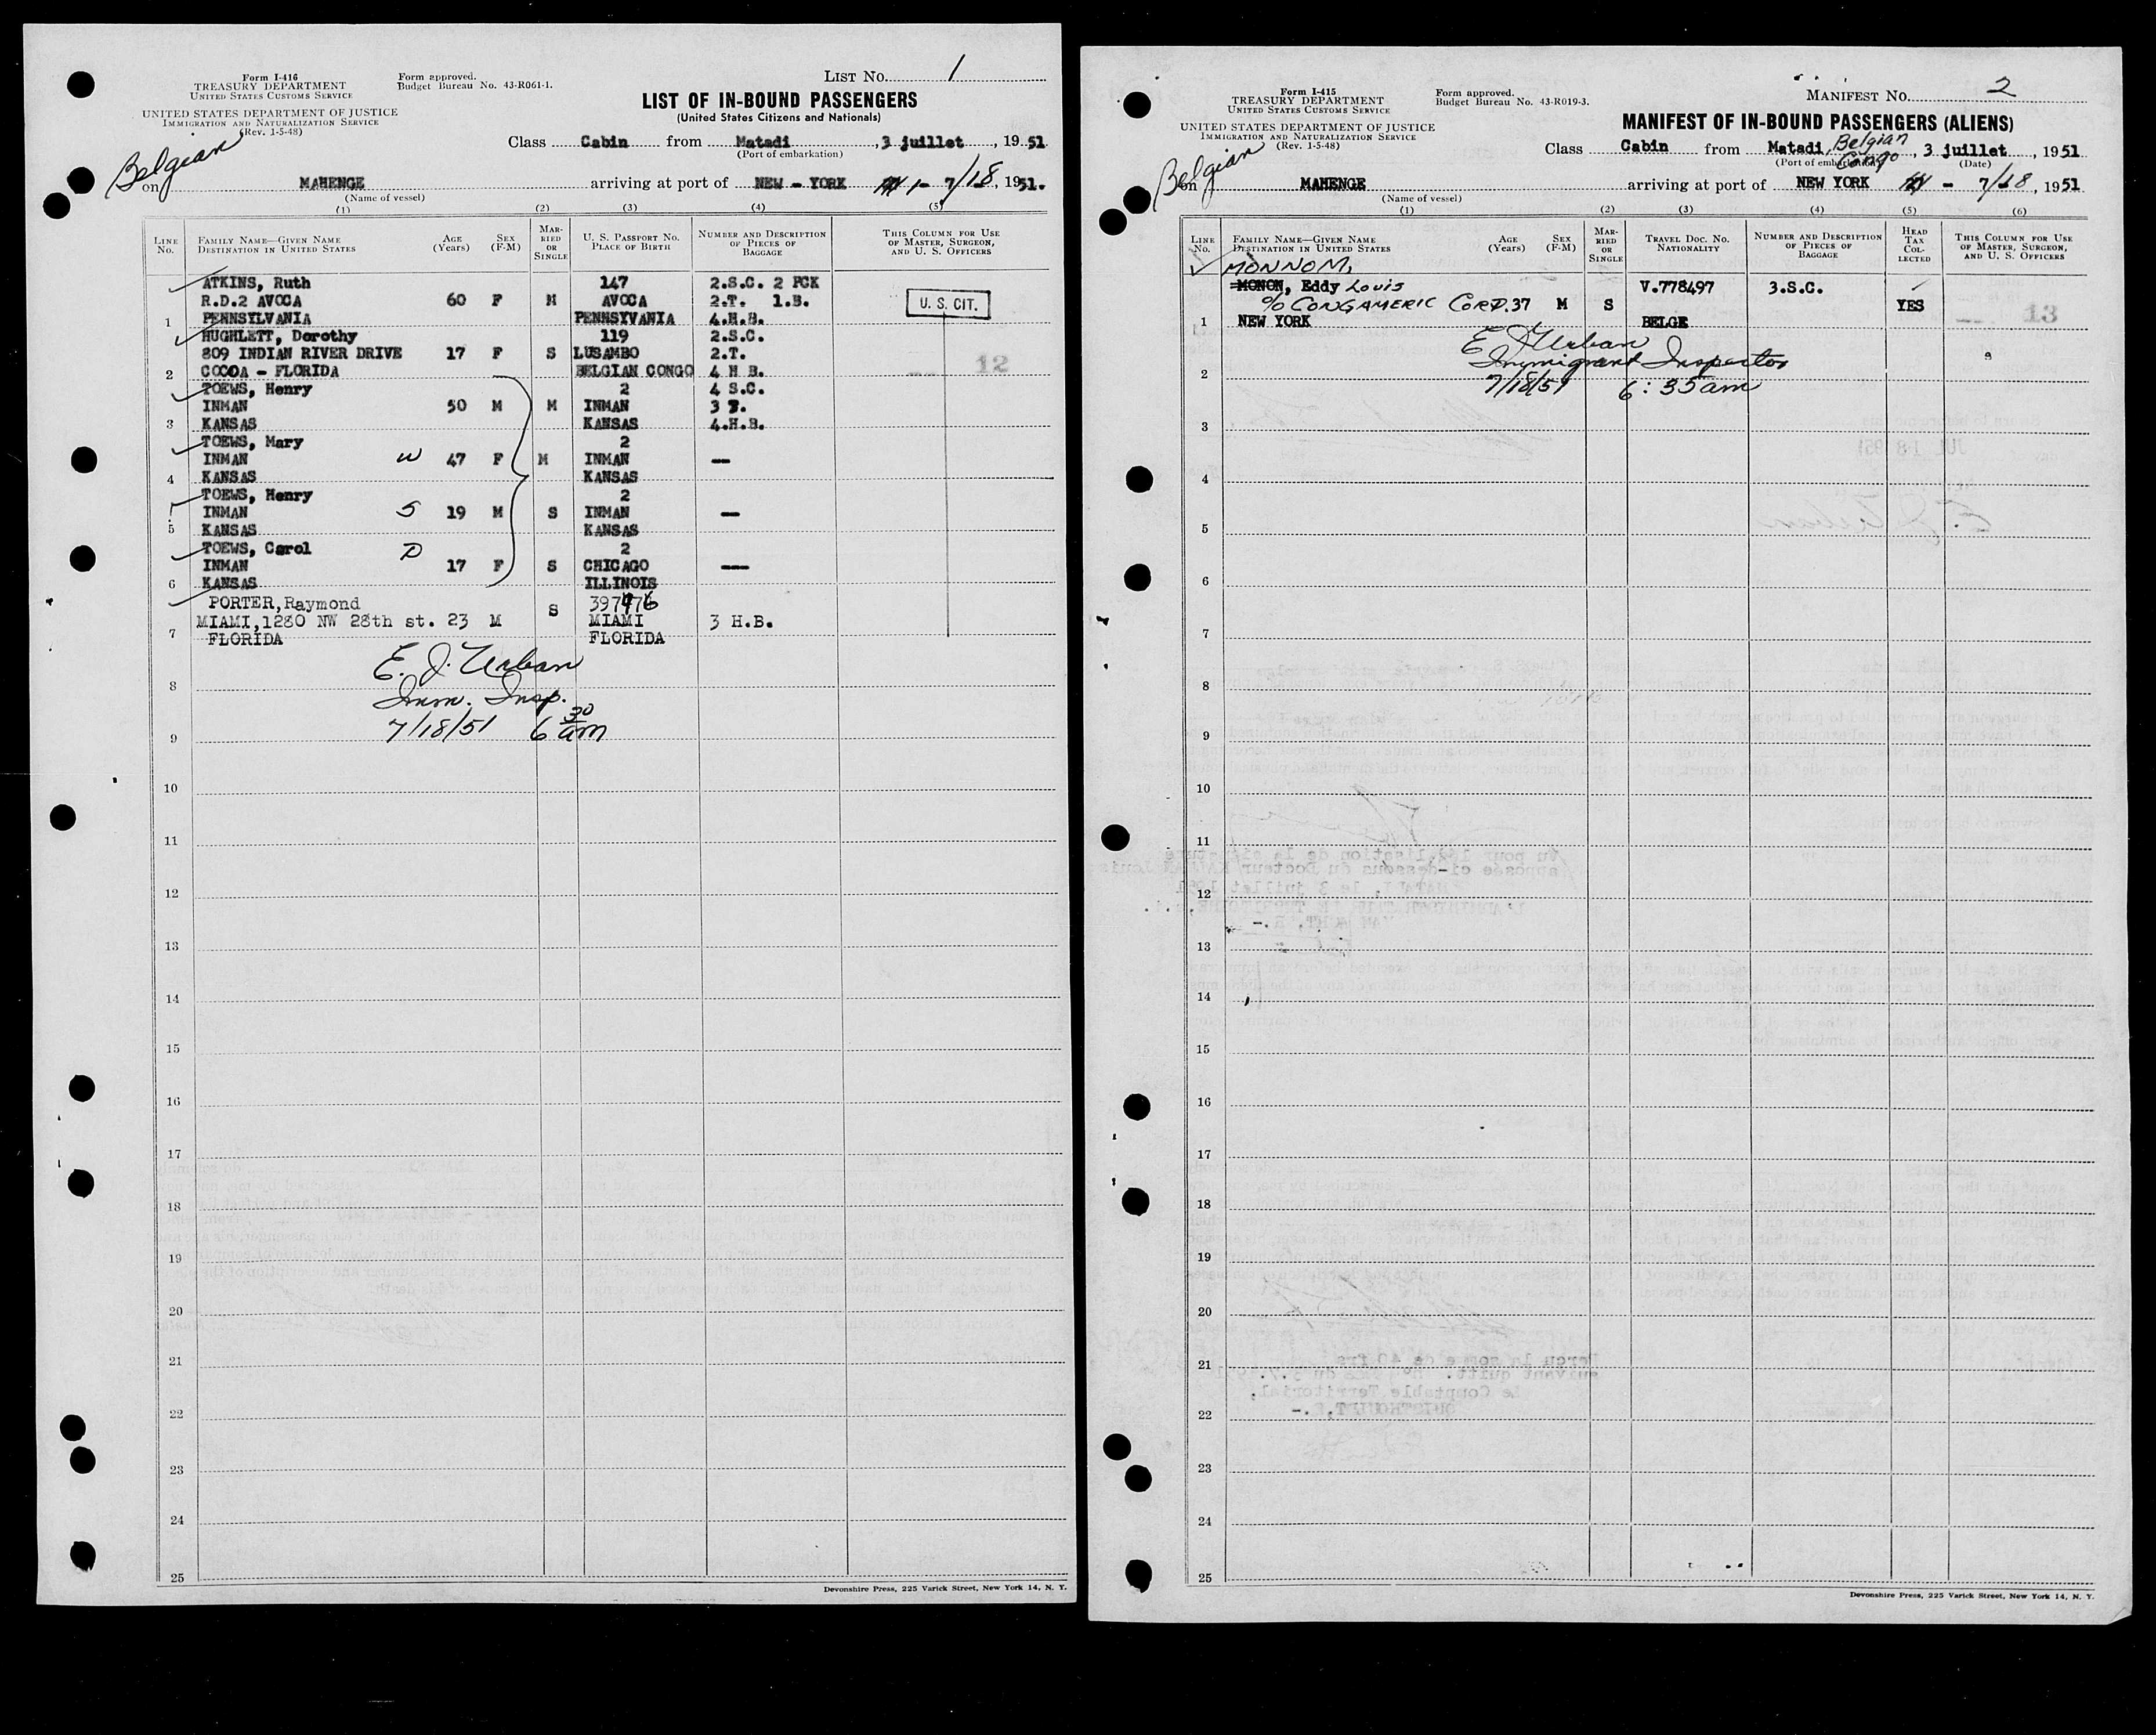 Form I-416
TREASURY DEPARTMENT
UNITED STATES CUSTOMS SERVICE
UNITED STATES DEPARTMENT OF JUSTICE
IMMIGRATION AND NATURALIZATION SERVICE
(Rev. 1-5-48)
Form approved.
Budget Bureau No. 43-R061-1.
LIST NO. 1
LIST OF IN-BOUND PASSENGERS
(United States Citizens and Nationals)
Class Cabin from Matadi, 3 juillet, 1951
(Port of embarkation)
Belgian
on MAHENGE arriving at port of NEW - YORK 7/18, 1951.
(Name of vessel)
(1) (2) (3) (4) (5)
LINE NO. FAMILY NAME—GIVEN NAME DESTINATION IN UNITED STATES AGE (Years) SEX (F-M) MARRIED OR SINGLE U. S. PASSPORT NO. PLACE OF BIRTH NUMBER AND DESCRIPTION OF PIECES OF BAGGAGE THIS COLUMN FOR USE OF MASTER, SURGEON, AND U. S. OFFICERS
ATKINS, Ruth 147 2.S.C. 2 PCK
R.D.2 AVOCA 60 F M AVOCA 2.T. 1.B. U. S. CIT.
1 PENNSYLVANIA PENNSYVANIA 4.H.B.
HUGHLETT, Dorothy 119 2.S.C.
809 INDIAN RIVER DRIVE 17 F S LUSAMBO 2.T. 12
2 COCOA - FLORIDA BELGIAN CONGO 4 H B.
TOEWS, Henry 2 4 S.C.
INMAN 50 M M INMAN 3 T.
3 KANSAS KANSAS 4.H.B.
TOEWS, Mary 2
INMAN W 47 F M INMAN —
4 KANSAS KANSAS
TOEWS, Henry 2
INMAN S 19 M S INMAN —
5 KANSAS KANSAS
TOEWS, Carol D 2
INMAN 17 F S CHICAGO —
6 KANSAS ILLINOIS
PORTER, Raymond S
MIAMI, 1280 NW 28th st. 23 M MIAMI 3 H.B.
7 FLORIDA FLORIDA
E. J. Urban
8 Imm. Insp.
7/18/51 6 30 am
9
10
11
12
13
14
15
16
17
18
19
20
21
22
23
24
25
Devonshire Press, 225 Varick Street, New York 14, N. Y.
Form I-415
TREASURY DEPARTMENT
UNITED STATES CUSTOMS SERVICE
UNITED STATES DEPARTMENT OF JUSTICE
IMMIGRATION AND NATURALIZATION SERVICE
(Rev. 1-5-48)
Form approved.
Budget Bureau No. 43-R019-3.
MANIFEST NO. 2
MANIFEST OF IN-BOUND PASSENGERS (ALIENS)
Class Cabin from Matadi, Belgian Congo, 3 juillet, 1951
(Port of embarkation) (Date)
Belgian
on MAHENGE arriving at port of NEW YORK - 7/18, 1951
(Name of vessel)
(1) (2) (3) (4) (5) (6)
LINE NO. FAMILY NAME—GIVEN NAME DESTINATION IN UNITED STATES AGE (Years) SEX (F-M) MARRIED OR SINGLE TRAVEL DOC. NO. NATIONALITY NUMBER AND DESCRIPTION OF PIECES OF BAGGAGE HEAD TAX COLLECTED THIS COLUMN FOR USE OF MASTER, SURGEON, AND U. S. OFFICERS
MONNOM,
MONON, Eddy Louis V.778497 3.S.C.
% CONGAMERIC CORP. 37 M S YES
1 NEW YORK BELGE 13
E J Urban
Immigrant Inspector
2 7/18/51 6:35 am
3
4
5
6
7
8
9
10
11
12
13
14
15
16
17
18
19
20
21
22
23
24
25
Devonshire Press, 225 Varick Street, New York 14, N. Y.